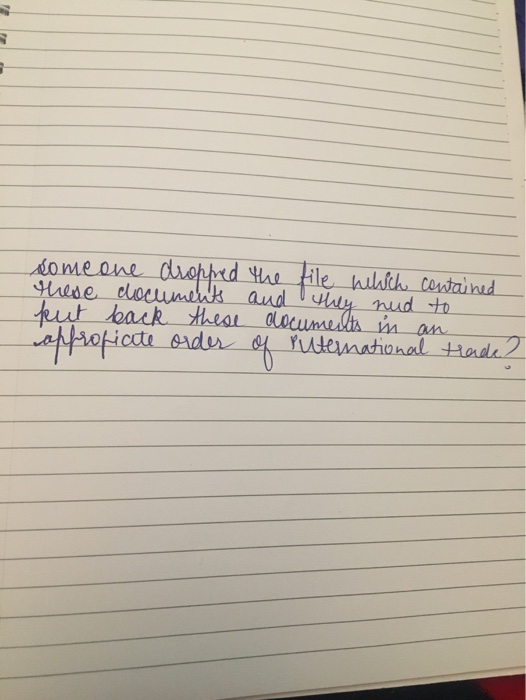 someone dropped the file which contained
these documents and they nud to
put back these documents in an
appropiate order of international trade?